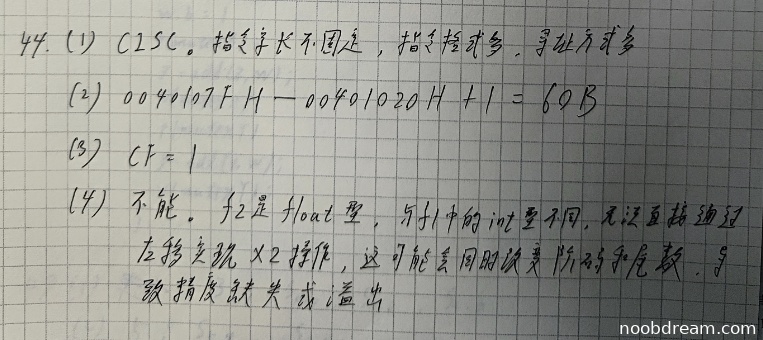 44. (1) CISC。指令字长不固定，指令格式多，寻址方式多
(2) 0040107FH — 00401020H + 1 = 60B
(3) CF = 1
(4) 不能。f2是float型，与f1中的int型不同，无法直接通过
左移实现 ×2 操作，这可能会同时改变阶码和尾数，导
致精度缺失或溢出
noobdream.com